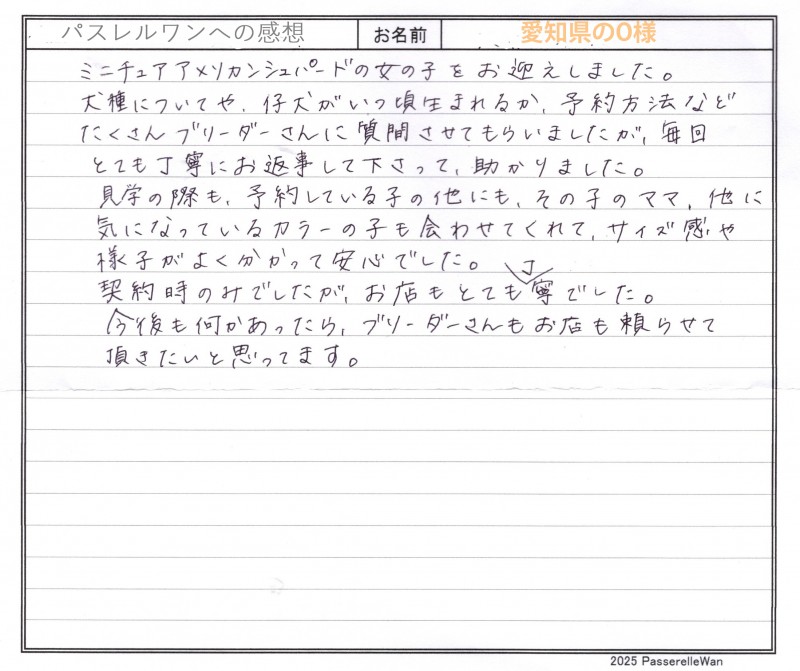 パスレルワンへの感想 お名前 愛知県のO様
ミニチュアアメリカンシェパードの女の子をお迎えしました。
犬種についてや、仔犬がいつ頃生まれるか、予約方法など
たくさんブリーダーさんに質問させてもらいましたが、毎回
とても丁寧にお返事して下さって、助かりました。
見学の際も、予約している子の他にも、その子のママ、他に
気になっているカラーの子も会わせてくれて、サイズ感や
様子がよく分かって安心でした。
契約時のみでしたが、お店もとても丁寧でした。
今後も何かあったら、ブリーダーさんもお店も頼らせて
頂きたいと思ってます。
2025 PasserelleWan